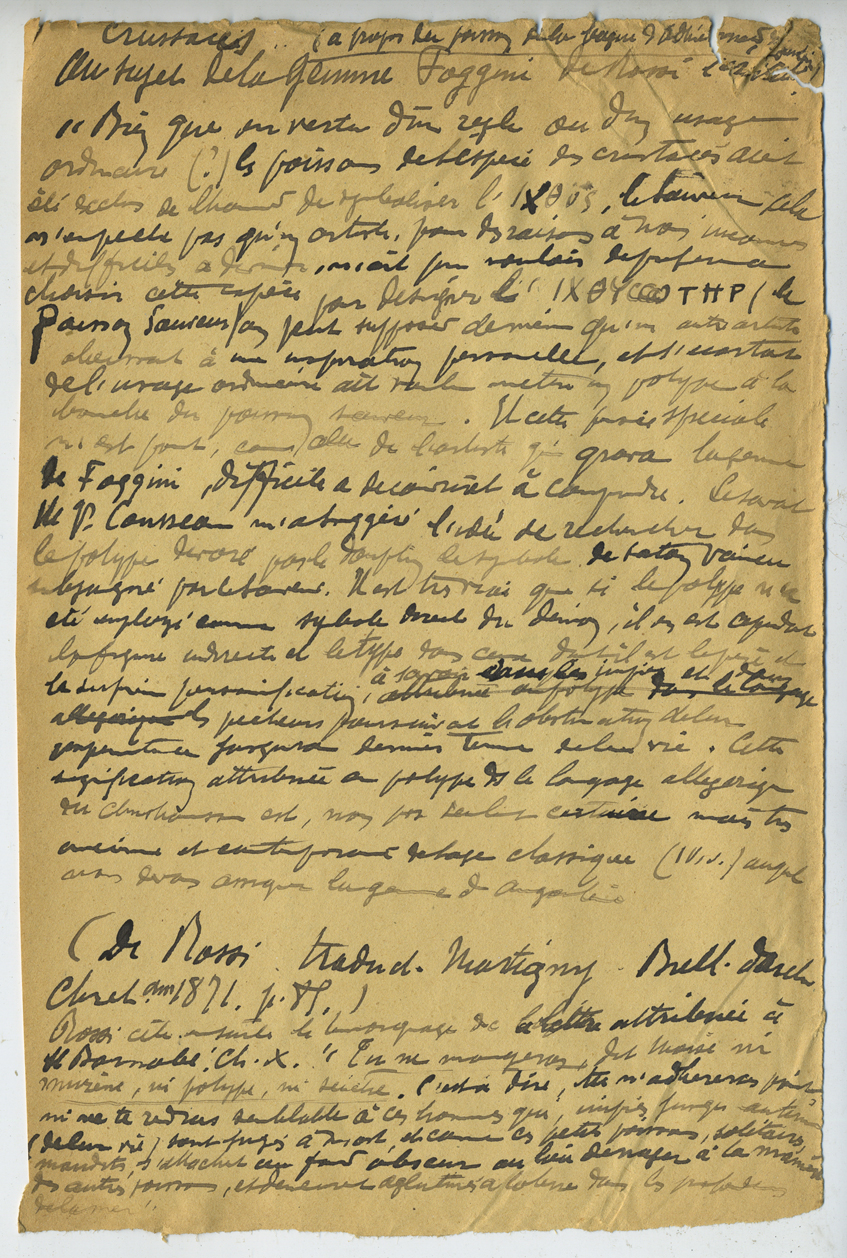 Crustacés .. (a propos du poisson de la bague d'Adhémar
Au sujet de la Gemme Foggini de Rossi
" Bien que en vertu d'une règle ou d'un usage
ordinaire (?) les poissons de l'espèce des crustacés aient
été exclus de l'honneur de symboliser l'ΙΧΘΥΣ, cela
n'empêche pas qu'un artiste, pour des raisons à nous inconnues
et difficiles à deviner, n'ait pu vouloir de préférence
choisir cette espèce pour désigner l'ΙΧΘΥC CΩΤΗΡ (le
Poisson Sauveur) on peut supposer de même qu'un autre artiste
obéissant à une inspiration personnelle, et s'écartant
de l'usage ordinaire ait voulu mettre un polype à la
bouche du poisson sauveur. Et cette pensée spéciale
n'est point, comme celle de l'artiste qui grava la gemme
de Foggini, difficile à découvrir et à comprendre. Le savant
M. P. Cousseau m'a suggéré l'idée de rechercher dans
le polype dévoré par le dauphin le symbole de satan vaincu
subjugué par le sauveur. Il est très vrai que si le polype n'a
été employé comme symbole direct du démon, il en est cependant
la figure indirecte et le type dans ceux dont il est le père et
à savoir dans les impies et dans
la suprême personnification, attribuée au polype dans le langage
allégorique les pécheurs poursuivant l'obstination de leur
impénitence jusqu'au dernier terme de leur vie. Cette
signification attribuée au polype ds le langage allégorique
du christianisme est, non pas seulement certaine mais très
ancienne et contemporaine de l'âge classique (IV s.) auquel
nous devons assigner la gemme d'
(De Rossi traduct. Martigny Bull. d'arch
Chret. ann 1871. p. 85.)
Rossi cite ensuite le témoignage de la lettre attribuée à
St Barnabé. Ch. X. " Tu ne mangeras, dit Moïse ni
murène, ni polype, ni seiche. C'est à dire, tu n'adhéreras point
ni ne te rendras semblable à ces hommes qui, impies jusqu'au terme
(de leur vie) sont jugés à mort, et comme ces petits poissons, solitaires,
maudits, s'attachent au fond obscur au lieu de nager à la manière
des autres poissons, et demeurent agglutinés à la terre dans les profondeurs
de la mer".